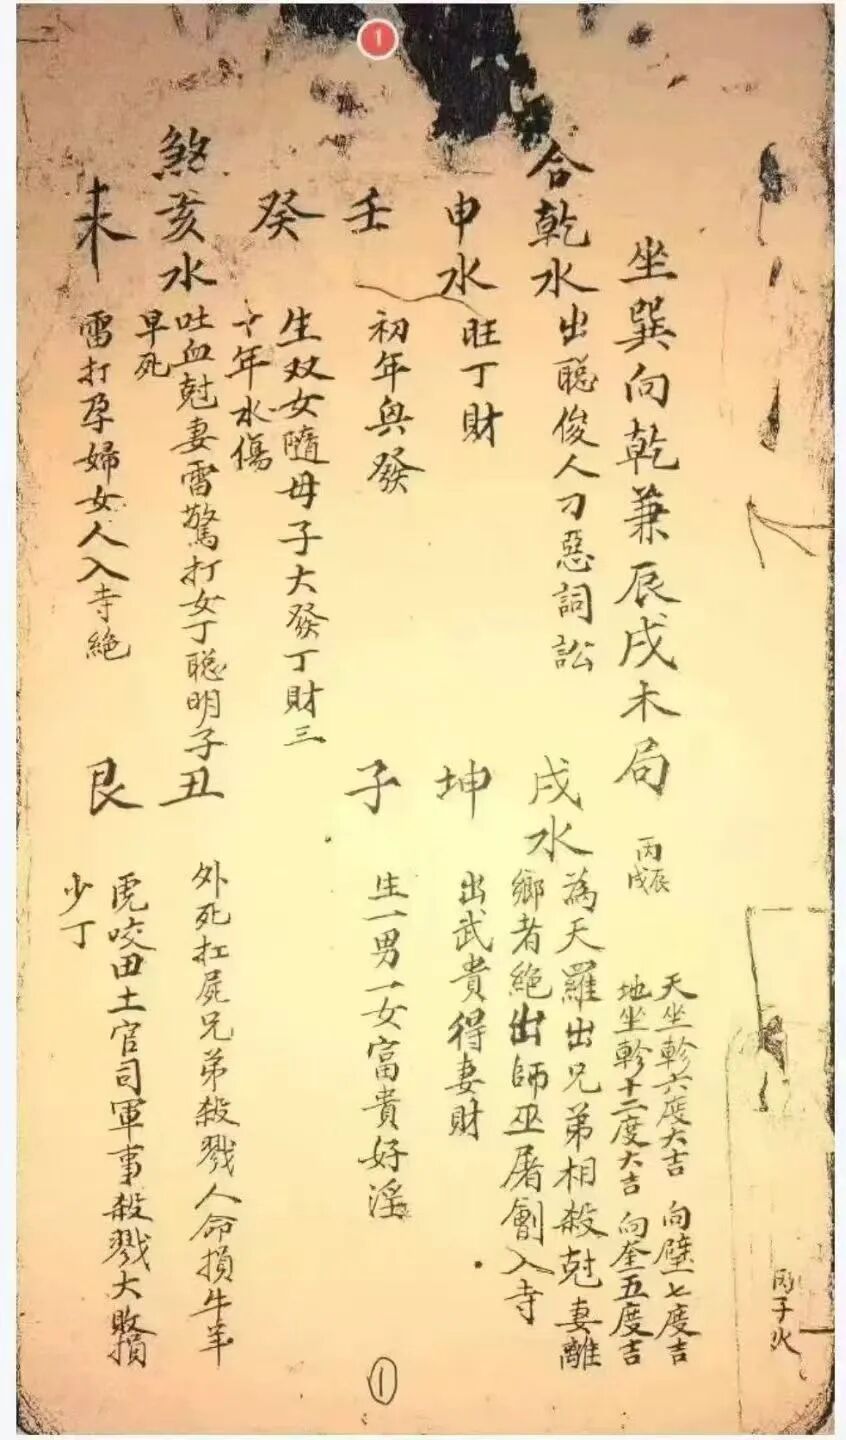 1
坐巽向乾兼辰戌木局
丙辰
丙戌
天坐軫六度大吉 向壁七度吉
地坐軫十二度大吉 向奎五度吉
合乾水 出聪俊人刁惡詞訟
戌水 為天羅出兄弟相殺尅妻離
鄉者絕出師巫屠劊入寺
申水 旺丁財
坤 出武貴得妻財
壬 初年興發
子 生一男一女富貴好淫
癸 生双女隨母子大發丁財三
十年水傷
煞亥水 吐血尅妻雷驚打女丁聪明子
早死
丑 外死扛屍兄弟殺戮人命損牛羊
未 雷打孕婦女人入寺絕
艮 虎咬田土官司軍事殺戮大敗損
少丁
丙子火
1